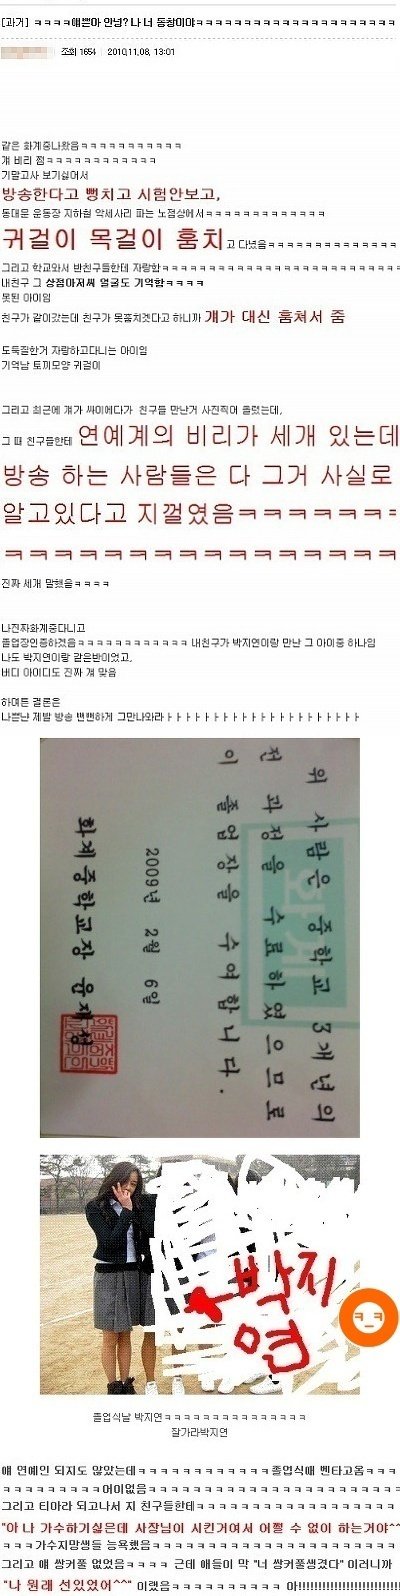 [과거] ㅋㅋㅋㅋ애쁜아 안녕? 나 너 동창이야ㅋㅋㅋㅋㅋㅋㅋㅋㅋㅋㅋㅋㅋㅋㅋㅋㅋㅋㅋㅋㅋ
조회 1654 | 2010.11.08. 13:01
같은 화계중나왔음ㅋㅋㅋㅋㅋㅋㅋㅋㅋㅋㅋ
걔 비리 점ㅋㅋㅋㅋㅋㅋㅋㅋㅋㅋㅋㅋ
기말고사 보기싫어서
방송한다고 뻥치고 시험안보고,
동대문 운동장 지하철 악세사리 파는 노점상에서ㅋㅋㅋㅋㅋㅋㅋㅋㅋㅋㅋㅋㅋ
귀걸이 목걸이 훔치고 다녔음ㅋㅋㅋㅋㅋㅋㅋㅋㅋㅋㅋㅋㅋㅋ
그리고 학교와서 반친구들한테 자랑함ㅋㅋㅋㅋㅋㅋㅋㅋㅋㅋㅋㅋㅋㅋㅋㅋㅋㅋㅋㅋㅋㅋㅋㅋ
내친구 그 상점아저씨 얼굴도 기억함ㅋㅋㅋㅋ
못된 아이임
친구가 같이갔는데 친구가 못훔치겟다고 하니까 걔가 대신 훔쳐서 줌
도둑질한거 자랑하고다니는 아이임
기억남 토끼모양 귀걸이
그리고 최근에 걔가 싸이에다가 친구들 만난거 사진찍어 올렸는데,
그 때 친구들한테 연예계의 비리가 세개 있는데
방송 하는 사람들은 다 그거 사실로
알고있다고 지껄였음ㅋㅋㅋㅋㅋㅋㅋ
ㅋㅋㅋㅋㅋㅋㅋㅋㅋㅋㅋㅋㅋㅋㅋㅋ
진짜 세개 말했음ㅋㅋㅋㅋ
나진짜화계중다니고
졸업장인증하겠음ㅋㅋㅋㅋㅋㅋㅋㅋㅋㅋㅋㅋ 내친구가 박지연이랑 만난 그 아이중 하나임
나도 박지연이랑 같은반이었고,
버디 아이디도 진짜 걔 맞음
하여튼 결론은
나쁜냔 제발 방송 뻔뻔하게 그만나와라ㅏㅏㅏㅏㅏㅏㅏㅏㅏㅏㅏㅏㅏㅏㅏㅏㅏㅏㅏㅏ
위 사람은 중학교 3개년의
전 과정을 수료하였으므로
이 졸업장을 수여합니다.
2009년 2월 6일
화계중학교장 윤재섭
화계
박지
연
졸업식날 박지연ㅋㅋㅋㅋㅋㅋㅋㅋㅋㅋㅋㅋㅋㅋㅋ
잘가라박지연
얘 연예인 되지도 않았는데ㅋㅋㅋㅋㅋㅋㅋㅋㅋㅋㅋ졸업식애 벤타고옴ㅋㅋㅋ
ㅋㅋㅋㅋㅋㅋㅋㅋㅋ어이없음ㅋㅋㅋㅋㅋㅋㅋㅋㅋㅋㅋㅋㅋㅋㅋㅋㅋㅋㅋㅋㅋㅋ
그리고 티아라 되고나서 지 친구들한테ㅋㅋㅋㅋㅋㅋㅋㅋㅋㅋㅋㅋㅋㅋㅋㅋㅋ
"아 나 가수하기싫은데 사장님이 시킨거여서 어쩔 수 없이 하는거야^^"
ㅋㅋㅋ가수지망생들 능욕했음ㅋㅋㅋㅋㅋㅋㅋㅋㅋㅋㅋㅋㅋㅋㅋㅋㅋㅋㅋㅋㅋ
그리고 얘 쌍커풀 없었음ㅋㅋㅋㅋ 근데 애들이 막 "너 쌍커풀생겼다" 이러니까
"나 원래 선있었어^^" 이랬음ㅋㅋㅋㅋㅋㅋㅋㅋㅋ 아!!!!!!!!!!!!!!!!!!!!!!!!!!!!